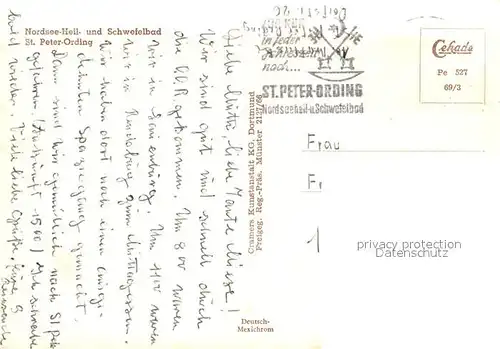 Nordsee-Heil- und Schwefelbad
St. Peter-Ording
in jeder
Jahreszeit
nach...
ST. PETER-ORDING
Nordseeheil-u.Schwefelbad
Cekade
Pe 527
69/3
Frau
Fr
1
privacy protection
Datenschutz
Cramers Kunstanstalt KG, Dortmund
Freigeg. Reg.-Präs. Münster 2127/66
Deutsch-
Mexichrom
Liebe Mutti, liebe Tante Miese!
Wir sind gut und schnell durch
die DDR gekommen. Um 8⁰⁰ waren
wir in Um 11⁰⁰ waren
wir in Rendsburg zum Mittagessen.
Wir haben dort noch einen
Spaziergang gemacht.
Dann sind wir gemütlich nach St. Peter
gefahren (Ankunft 15⁰⁰) Ich schreibe
bald wieder. Viele liebe Grüße